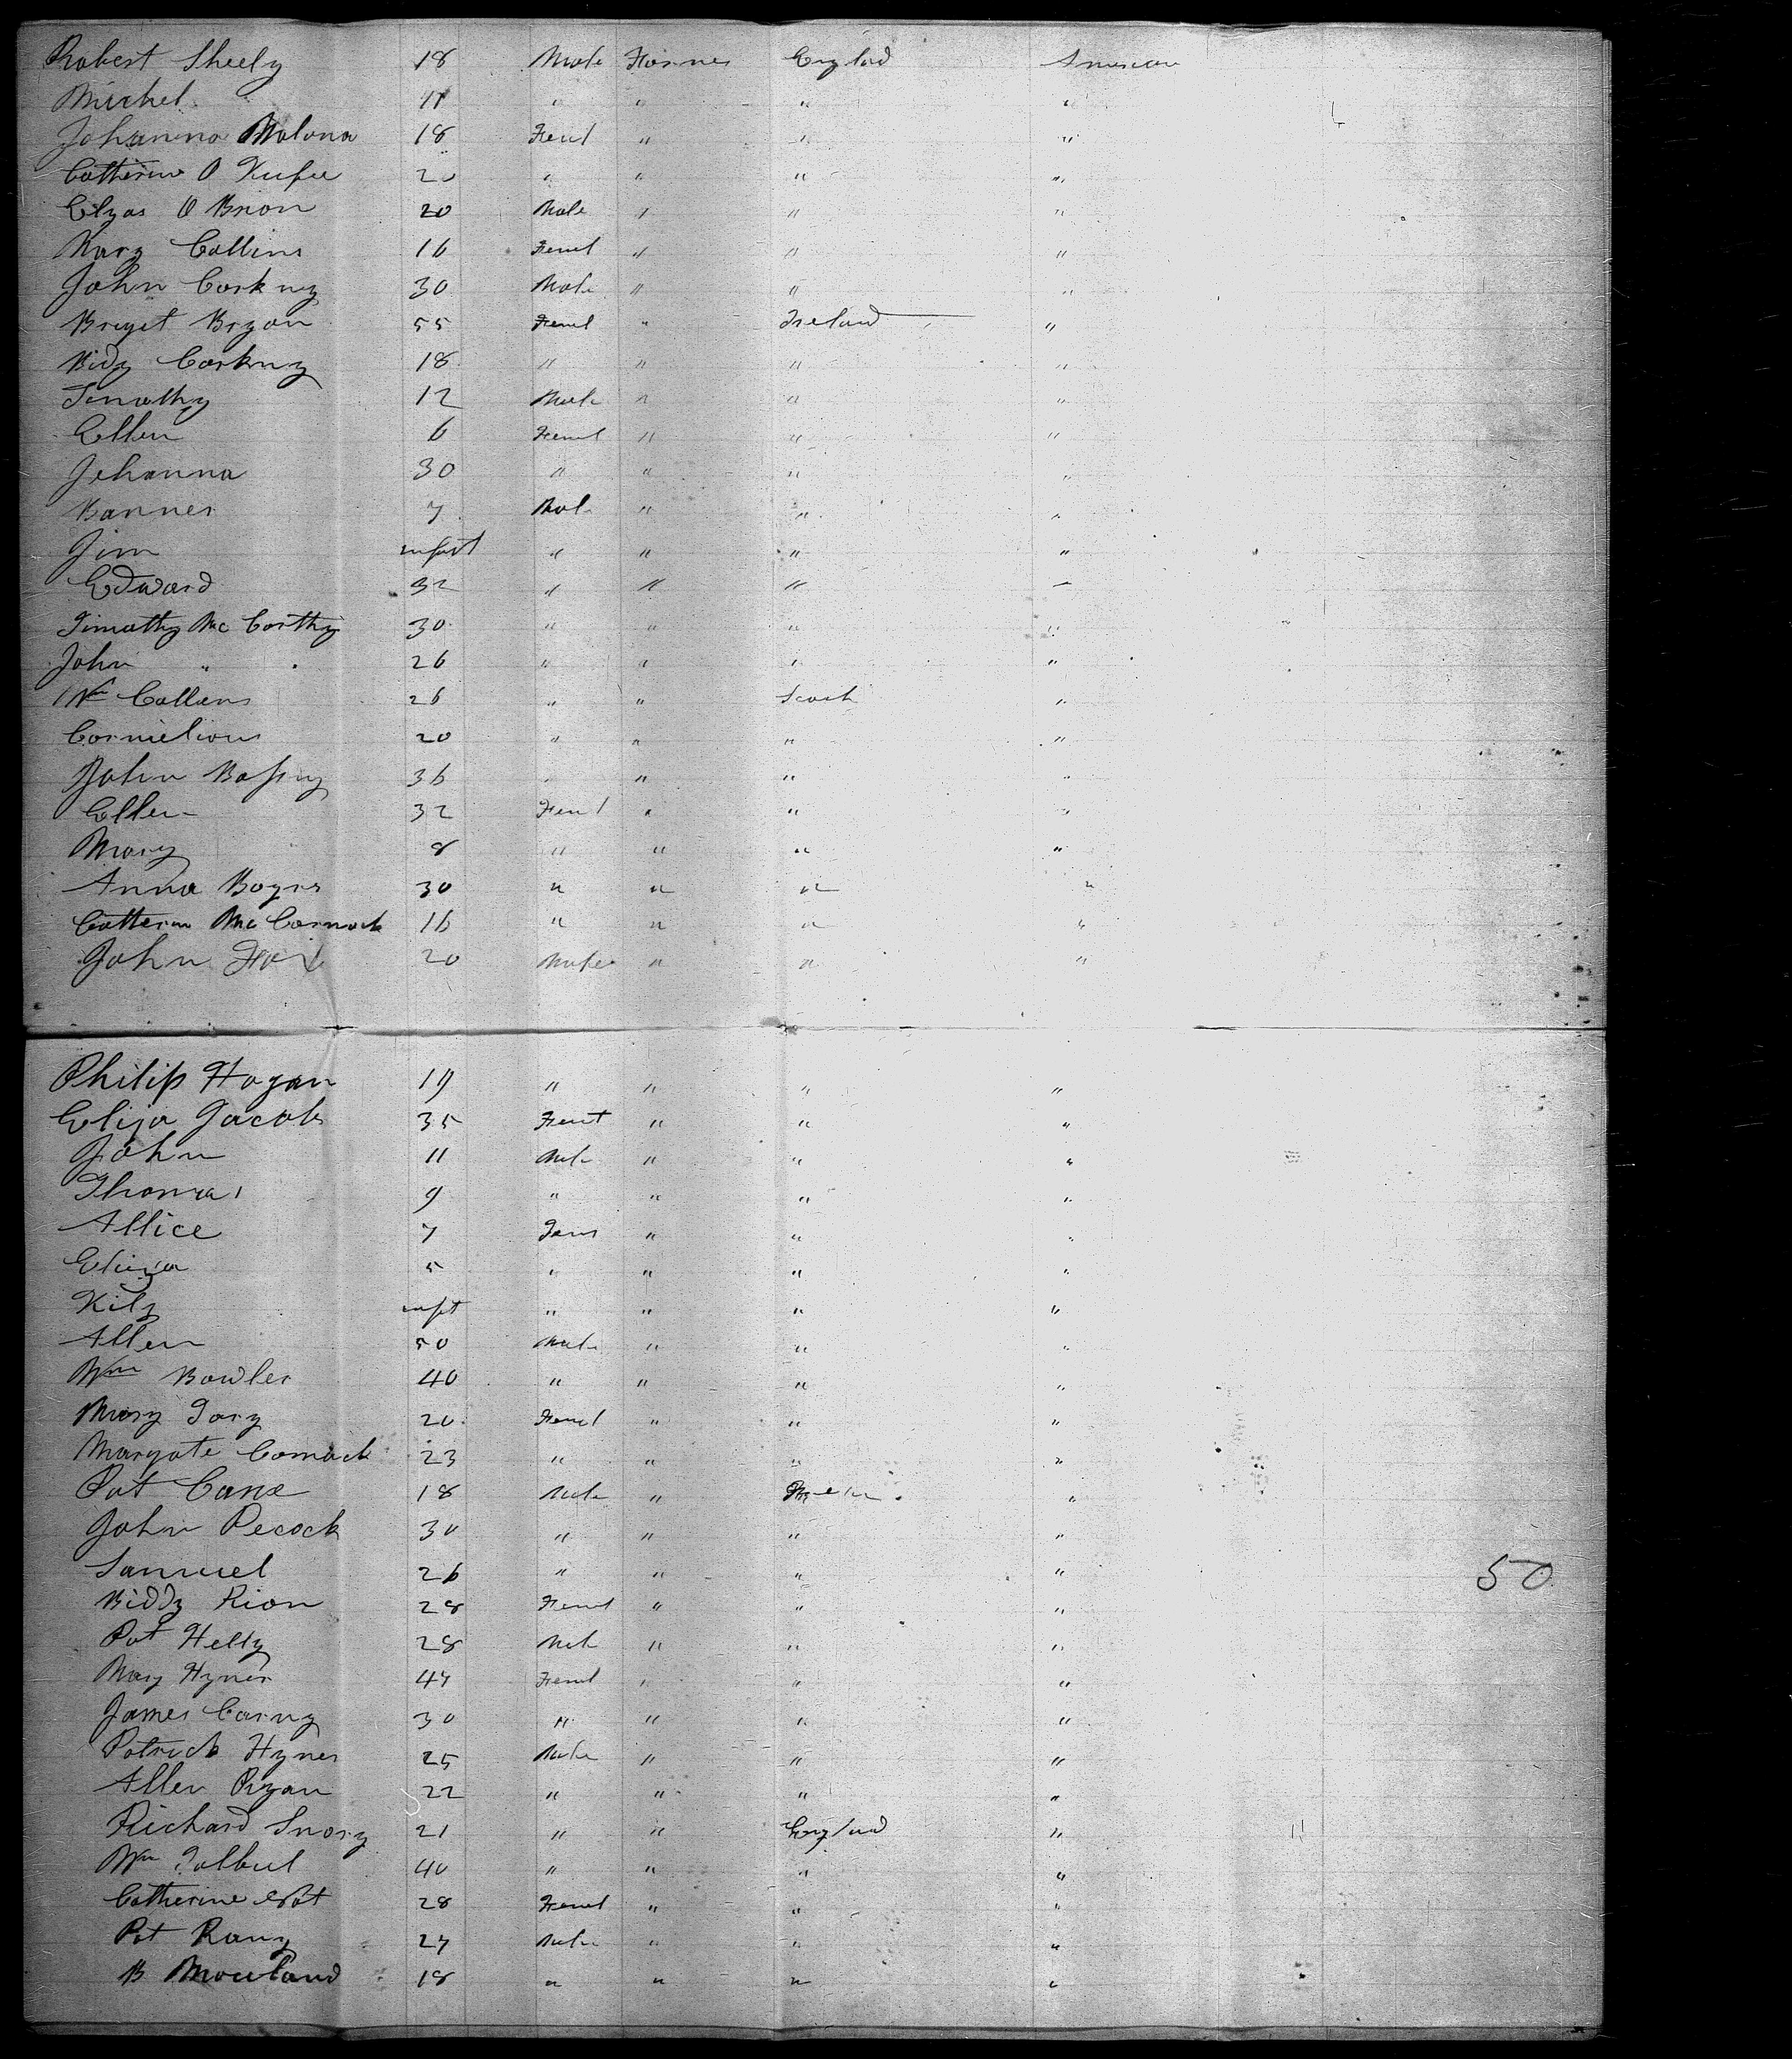 Robert Sheely 18 Male Farmer England American
Michel 11 " " " "
Johanna Malona 18 Feml " " "
Catherine O Kufee 20 " " " "
Elyas O Brion 20 Male " " "
Mary Collins 16 Feml " " "
John Corkny 30 Male " " "
Breyet Bryan 55 Feml " Ireland "
Bidy Corkny 18 " " " "
Timothy 12 Male " " "
Ellen 6 Feml " " "
Johanna 30 " " " "
Banner 7 Male " " "
Jim infant " " " "
Edward 32 " " " "
Timothy Mc Carthy 30 " " " "
John " 26 " " " "
Wm Collans 26 " " Scoch "
Cornielious 20 " " " "
John 36 " " " "
Ellen 32 Feml " " "
Mary 8 " " " "
Anna Boyrs 30 " " " "
Catteran Mc Cormack 16 " " " "
John 20 Male " " "
Philip Hogan 19 " " " "
Eliza Jacobs 35 Feml " " "
John 11 Male " " "
Thomas 9 " " " "
Allice 7 " " "
Eliza 5 " " " "
Kily inft " " " "
Allen 50 Male " " "
Wm Bowler 40 " " " "
Mary Tory 20 Feml " " "
Margate Comack 23 " " " "
Pat Cane 18 Male " "
John Pecock 30 " " " "
Samuel 26 " " " " 50
Biddy Rion 28 Feml " " "
Pat Helly 28 Male " " "
Mary Hynes 47 Feml " " "
James Carny 30 " " " "
Patrick Hynes 25 Male " " "
Allen Ryan 22 " " " "
Richard Snory 21 " " England "
Wm Talbut 40 " " " "
Catherine 28 Feml " " "
Pat Rany 27 Male " " "
B Mouland 18 " " " "